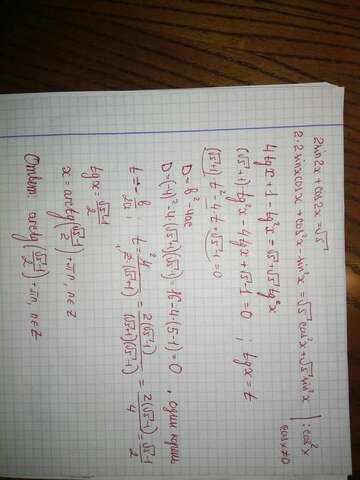 2sin2x + cos2x = √5
2·2sinxcosx + cos²x - sin²x = √5cos²x + √5sin²x | : cos²x
cosx ≠ 0
4tgx + 1 - tg²x = √5 + √5tg²x
(√5+1)tg²x - 4tgx + √5 - 1 = 0 ; tgx = t
(√5+1)t² - 4t + (√5-1) = 0
D = b² - 4ac
D = (-4)² - 4·(√5+1)(√5-1) = 16 - 4·(5-1) = 0, один корень
t = -b/2a ; t = 4/2(√5+1) = 2(√5-1)/(√5+1)(√5-1) = 2(√5-1)/4 = √5-1/2
tgx = √5-1/2
x = arctg(√5-1/2) + πn, n∈Z
Ответ: arctg(√5-1/2) + πn, n∈Z